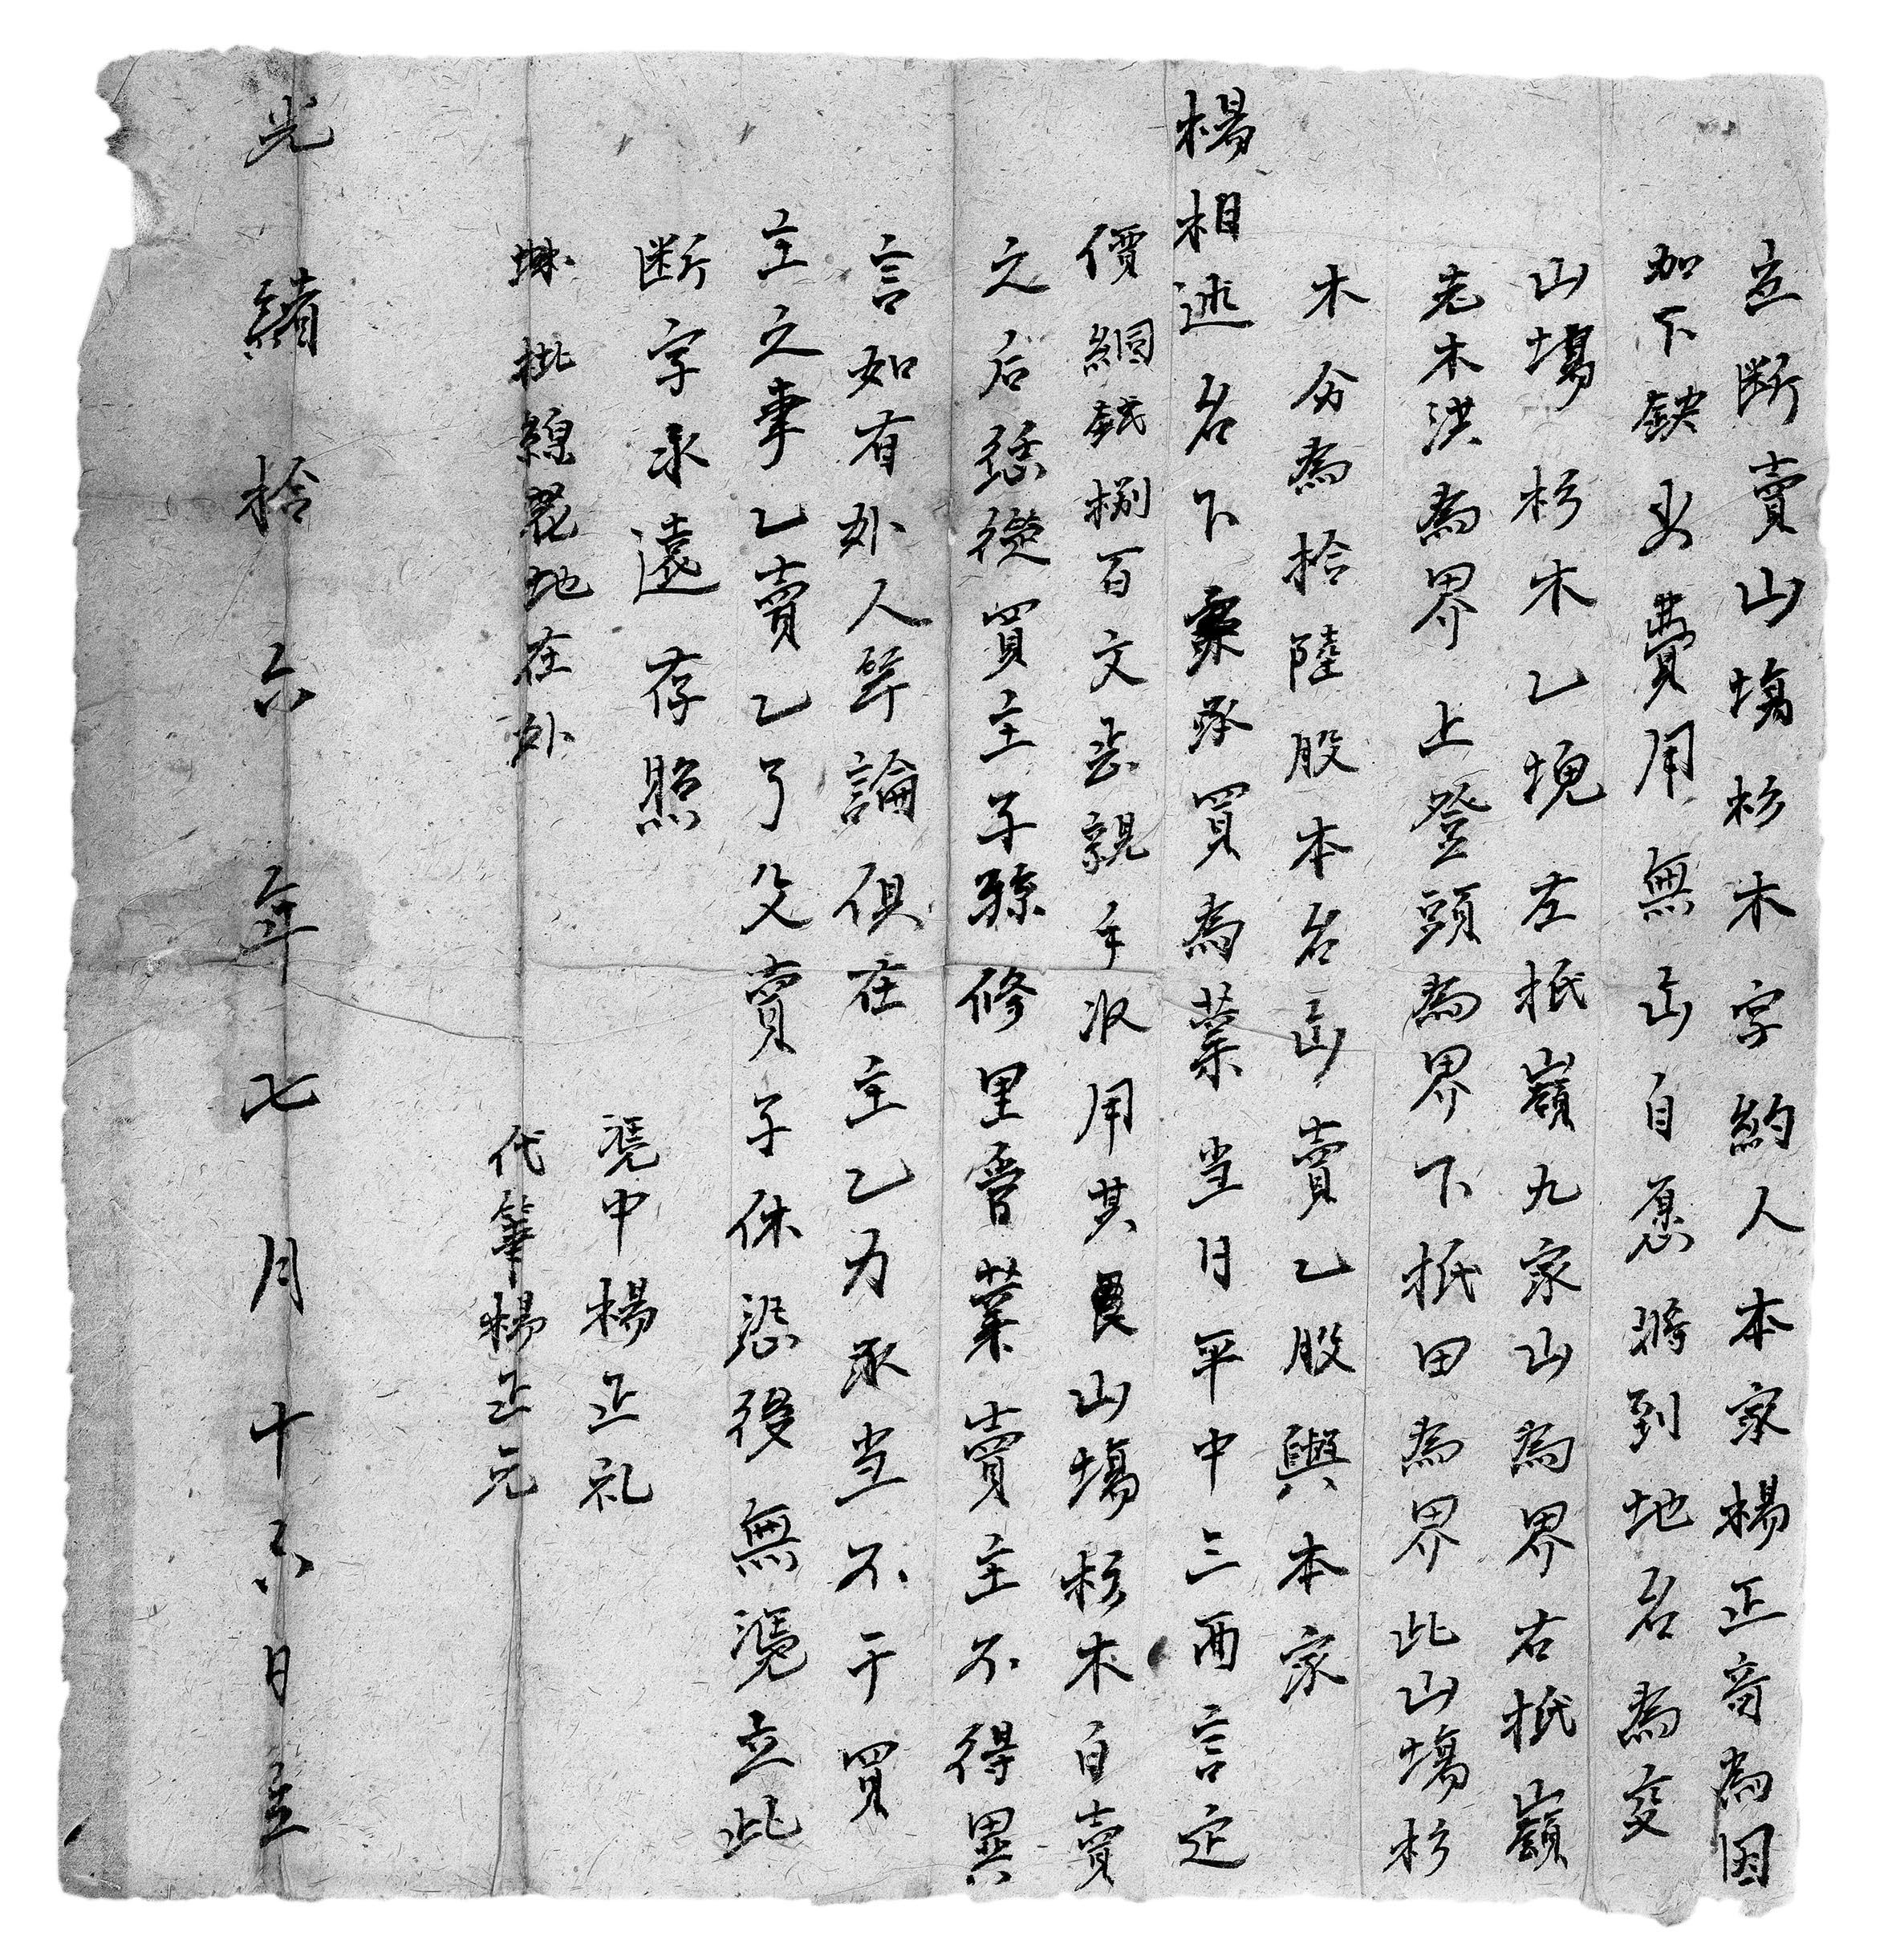 立断賣山塲杉木字約人本家楊正音為因
加下缺少費用無出自愿將到地名為
山塲杉木乙塊左抵嶺九家山為界右抵嶺
老木洪為界上登頭為界下抵田為界此山塲杉
木分為拾陸股本名出賣乙股與本家
楊相述名下承買為業当日平中三面言定
價銅錢捌百文足親手收用其山塲杉木自賣
之后恁從買主子孫修里管業賣主不得異
言如有外人爭論俱在主乙力承当不干買
主之事乙賣乙了父賣子休恐後無憑立此
断字永遠存照
憑中楊正礼
批綿花地在外
代筆楊正元
光緒拾六年七月十六日立